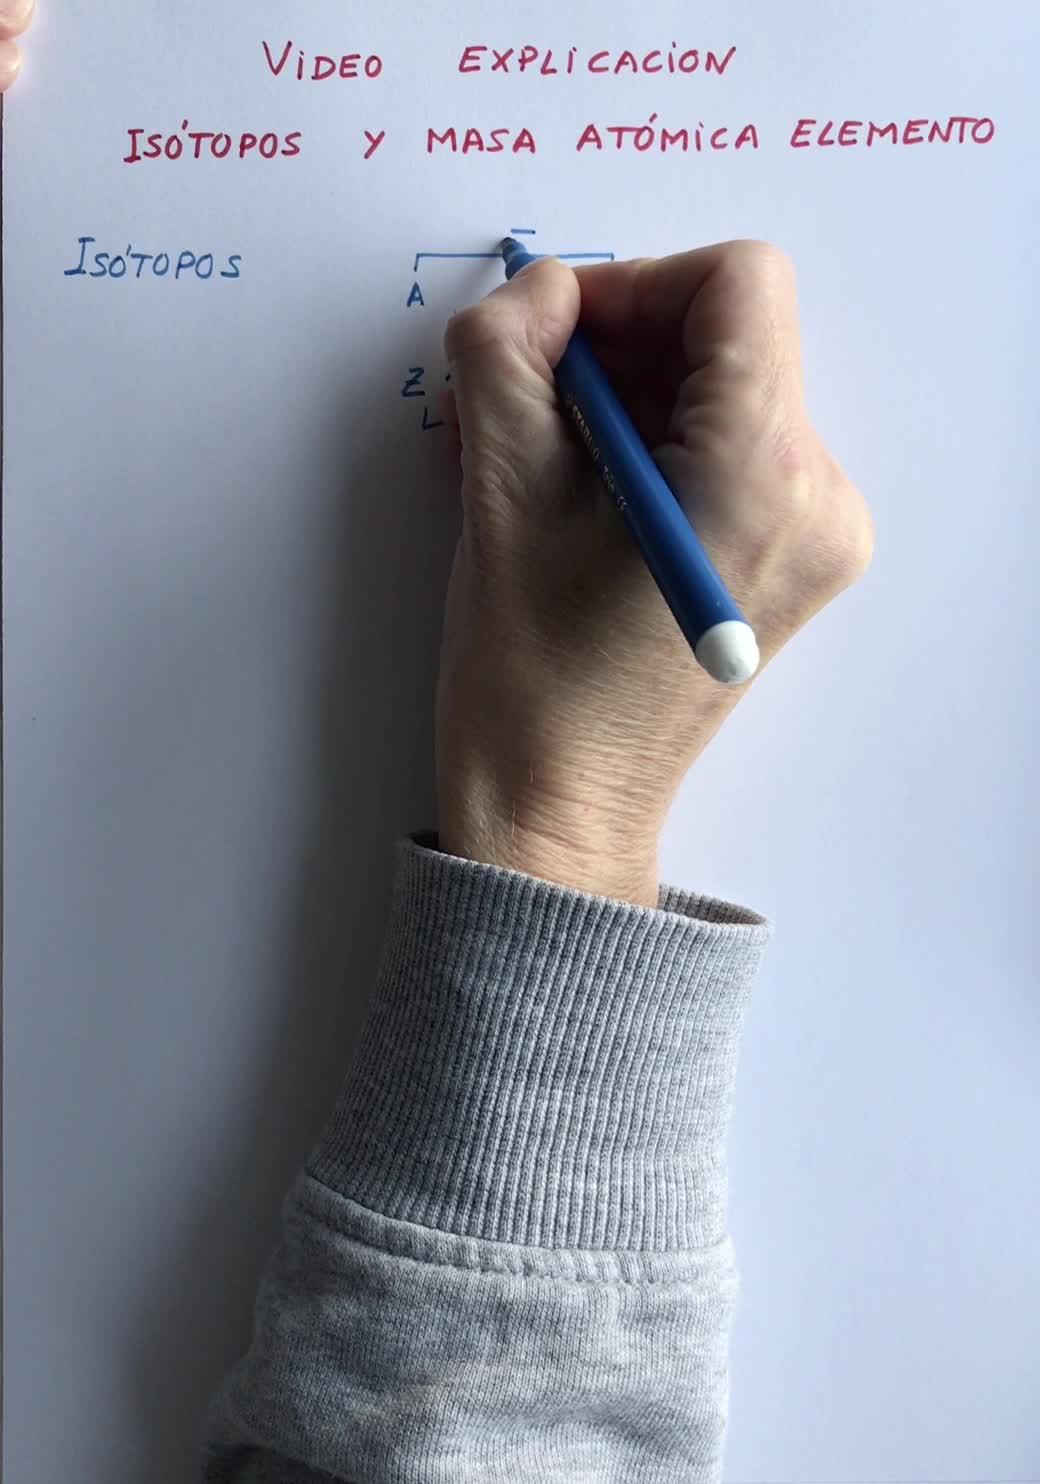 VIDEO EXPLICACION
ISÓTOPOS Y MASA ATÓMICA ELEMENTO
ISÓTOPOS
A
Z
STABILO